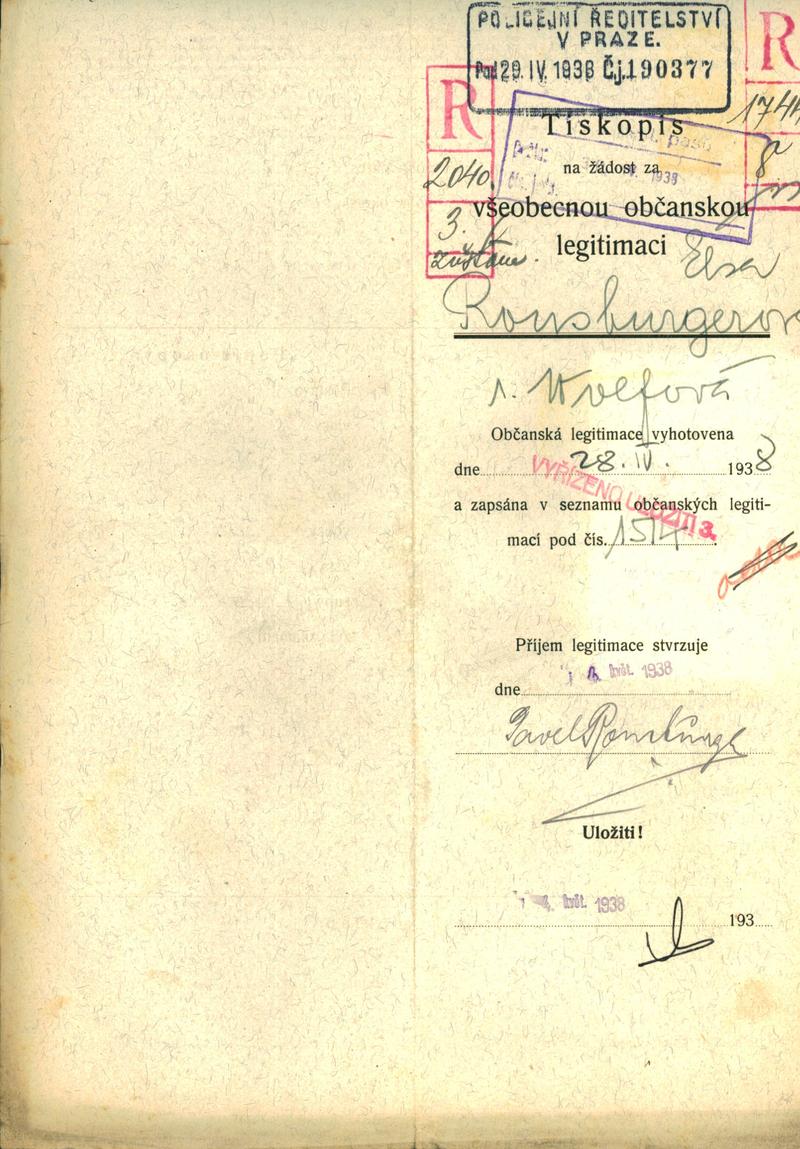 POLICEJNÍ ŘEDITELSTVÍ
V PRAZE.
29. IV. 1938 Čj. 190377
R
R
Tiskopis
na žádost za
1938
2040.
3.
všeobecnou občanskou
legitimaci Elsa
8
Ronsburgerov
r. Wolfová
Občanská legitimace vyhotovena
dne 28. IV. 1938
VYŘÍZENO ULOŽITI 3.
a zapsána v seznamu občanských legiti-
mací pod čís. 1514
Příjem legitimace stvrzuje
dne květ. 1938
Pavel
Uložiti!
4. květ. 1938
193